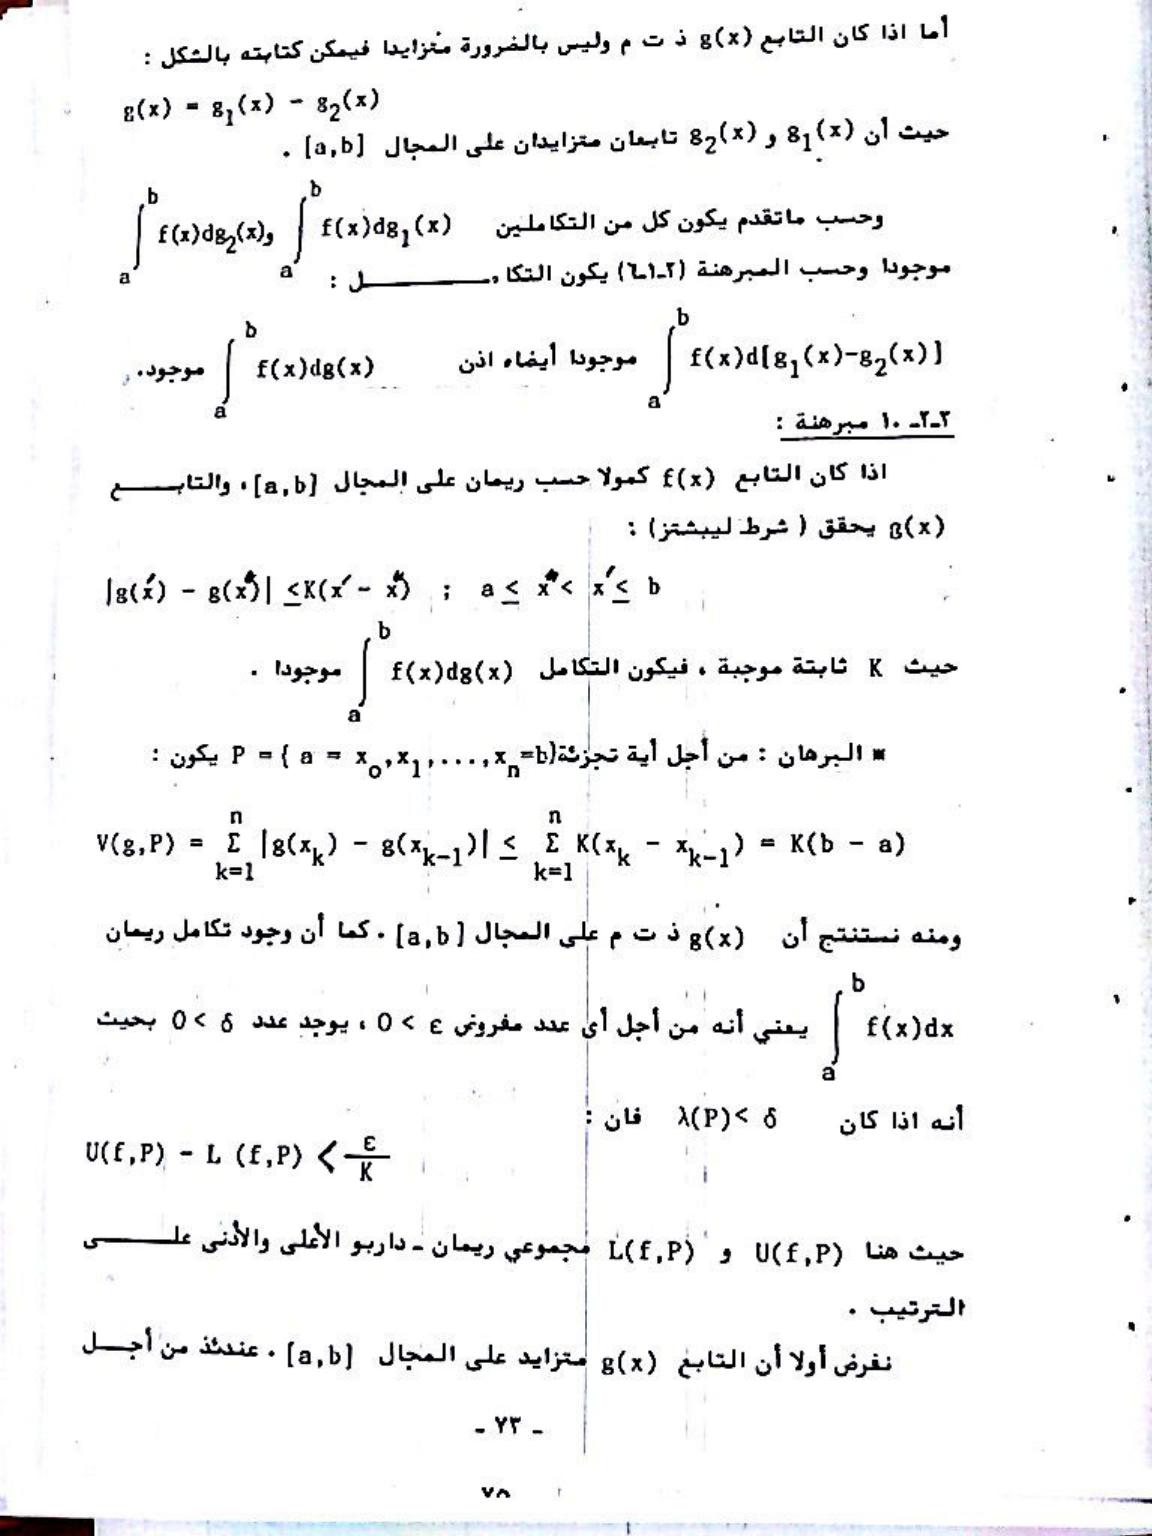 أما اذا كان التابع g(x) ذ ت م وليس بالضرورة متزايدا فيمكن كتابته بالشكل :
g(x) = g₁(x) - g₂(x)
حيث أن g₁(x) و g₂(x) تابعان متزايدان على المجال [a,b] .
وحسب ماتقدم يكون كل من التكاملين ∫ₐᵇ f(x)dg₁(x) و ∫ₐᵇ f(x)dg₂(x)
موجودا وحسب المبرهنة (٢-١-٦) يكون التكامـــــــــل :
∫ₐᵇ f(x)d[g₁(x)-g₂(x)] موجودا أيضا، اذن ∫ₐᵇ f(x)dg(x) موجود.
٢-٢-١٠ مبرهنة :
اذا كان التابع f(x) كمولا حسب ريمان على المجال [a,b]، والتابـــــع
g(x) يحقق ( شرط ليبشتز) :
|g(x′) - g(x″)| ≤ K(x′ - x″) ; a ≤ x″ < x′ ≤ b
حيث K ثابتة موجبة ، فيكون التكامل ∫ₐᵇ f(x)dg(x) موجودا .
* البرهان : من أجل أية تجزئة P = { a = x₀,x₁,...,xₙ=b} يكون :
V(g,P) = Σₖ₌₁ⁿ |g(xₖ) - g(xₖ₋₁)| ≤ Σₖ₌₁ⁿ K(xₖ - xₖ₋₁) = K(b - a)
ومنه نستنتج أن g(x) ذ ت م على المجال [a,b] . كما أن وجود تكامل ريمان
∫ₐᵇ f(x)dx يعني أنه من أجل أي عدد مفروض ε > 0 ، يوجد عدد δ > 0 بحيث
أنه اذا كان λ(P) < δ فان :
U(f,P) - L (f,P) < ε/K
حيث هنا U(f,P) و L(f,P) مجموعي ريمان - داربو الأعلى والأدنى علـــــى
الترتيب .
نفرض أولا أن التابع g(x) متزايد على المجال [a,b] . عندئذ من أجـــل
- ٧٣ -
٧٥